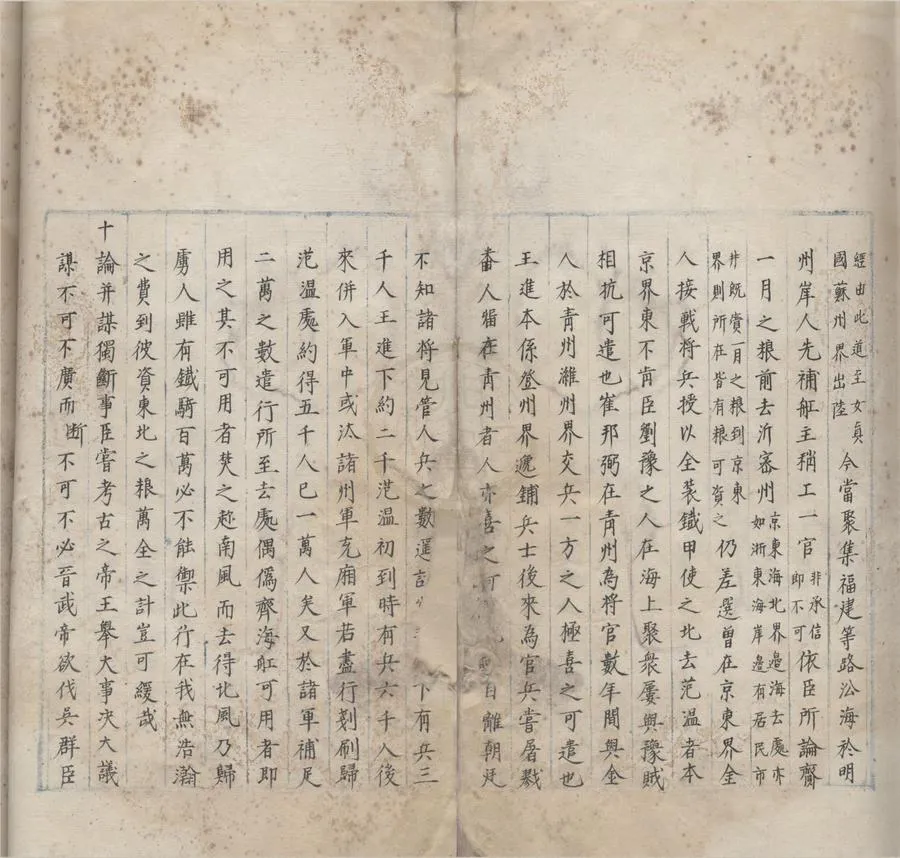 經由此道至女真
國蘇州界出陸今當聚集福建等路㳂海於明
州岸人先補舡主稍工一官非承信即不可依臣所論齎
一月之粮前去沂密州京東海北界邉海去處亦如浙東海岸邉有居民市
井既賫一月之粮到京東界則所在皆有粮可資之仍差選曾在京東界全
人接戰將兵授以全装鐵甲使之北去范温者本
京界東不肯臣劉豫之人在海上聚衆屢與豫賊
相抗可遣也崔邦弼在青州為將官數年間與金
人於青州濰州界交兵一方之人極喜之可遣也
王進本係登州界遞鋪兵士後來為官兵嘗屠戮
畨人畱在青州者人亦喜之可 自離朝廷
不知諸將見管人兵之數遥 下有兵三
千人王進下約二千范温初到時有兵六千人後
來併入軍中或汰諸州軍充廂軍若盡行刬刷歸
范温處約得五千人已一萬人矣又於諸軍補足
二萬之數遣行所至去處偶僞齊海舡可用者即
用之其不可用者焚之趂南風而去得北風乃歸
虜人雖有鐵騎百萬必不能禦此行在我無浩瀚
之費到彼資東北之粮萬全之計豈可緩哉
十論并謀獨斷事臣嘗考古之帝王舉大事决大議
謀不可不廣而斷不可不必晉武帝欲伐吳群臣